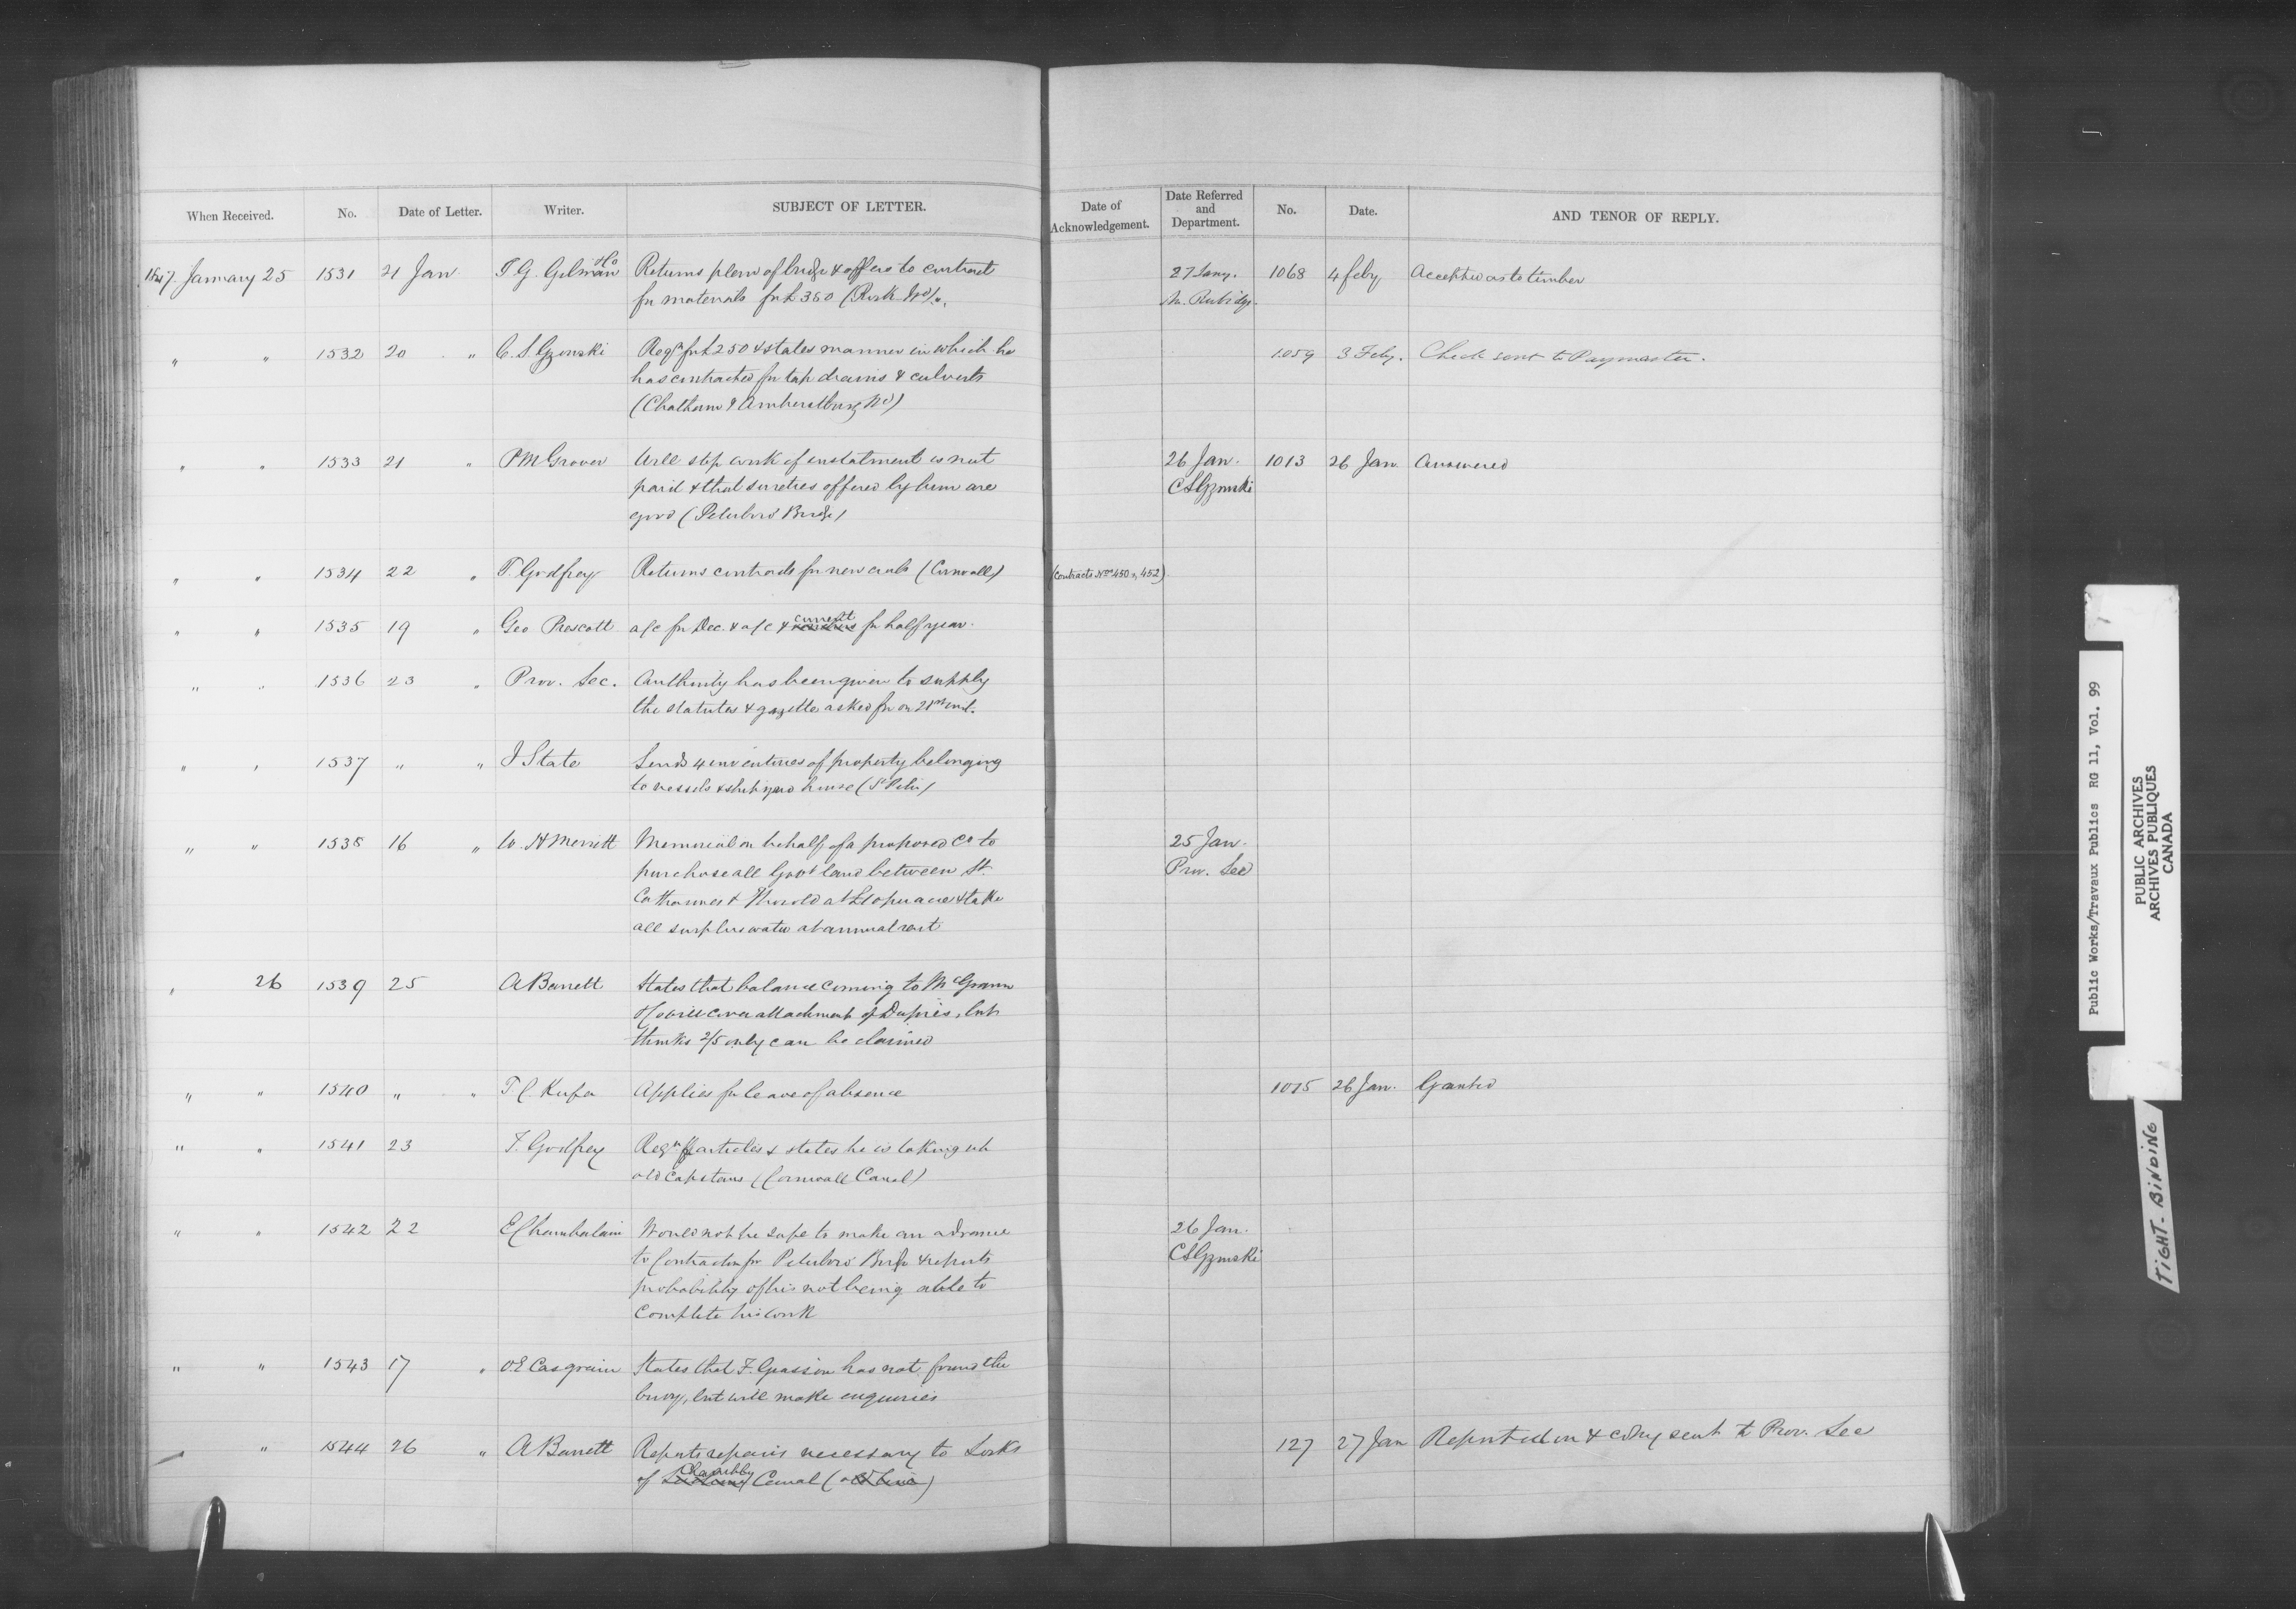 When Received. No. Date of Letter. Writer. SUBJECT OF LETTER. Date of Acknowledgement. Date Referred and Department. No. Date. AND TENOR OF REPLY.
1847. January 25 1531 21 Jan T. G. Gilman &Co Returns plan of bridge & offers to contract 27 Jany. 1068 4 feby Accepted as to timber
for materials for £350 M. Rubidge
" " 1532 20 " C. S. Gzowski Reqn for £250 & states manner in which he 1059 3 Feby. Check sent to Paymaster.
has contracted for tap drains & culverts
(Chatham & Amherstburg Rd)
" " 1533 21 " P M Grover Will stop work if instalment is not 26 Jan. 1013 26 Jan. Answered
paid & that sureties offered by him are CSGzowski
good (Peterboro' Bridge)
" " 1534 22 " T. Godfrey Returns contracts for new cribs (Cornwall) (Contracts Nos 450 & 452)
" " 1535 19 " Geo Prescott a/c for Dec. & a/c & current for half year.
" " 1536 23 " Prov. Sec. Authority has been given to supply
the statutes & gazette asked for on 21st inst.
" " 1537 " " J State Sends 4 inventories of property belonging
to vessels & shipyard house (St Peter)
" " 1538 16 " W. H Merritt Memorial on behalf of a proposed Co to 25 Jan.
purchase all Govt land between St. Prov. Sec
Catharines & Thorold at £10 per acre & take
all surplus water at annual rent
" 26 1539 25 A Barrett States that balance coming to McGrann
&Co will cover attachment of Dupuis, but
thinks 2/5 only can be claimed
" " 1540 " " T C Keefer Applies for leave of absence 1015 26 Jan. Granted
" " 1541 23 T. Godfrey Reqn for articles & states he is taking up
old capstans (Cornwall Canal)
" " 1542 22 E Chamberlain Would not be safe to make an advance 26 Jan.
to Contractor for Peterboro' Bridge & reports CSGzowski
probability of his not being able to
complete his work
" " 1543 17 " O. E Casgrain States that F. Grassion has not found the
buoy, but will make enquiries
" " 1544 26 " A Barrett Reports repairs necessary to Locks 127 27 Jan Reported on & copy sent to Prov. Sec
of Chambly Canal (old line)
Public Works/Travaux Publics RG 11, Vol. 99
PUBLIC ARCHIVES
ARCHIVES PUBLIQUES
CANADA
TIGHT-BINDING